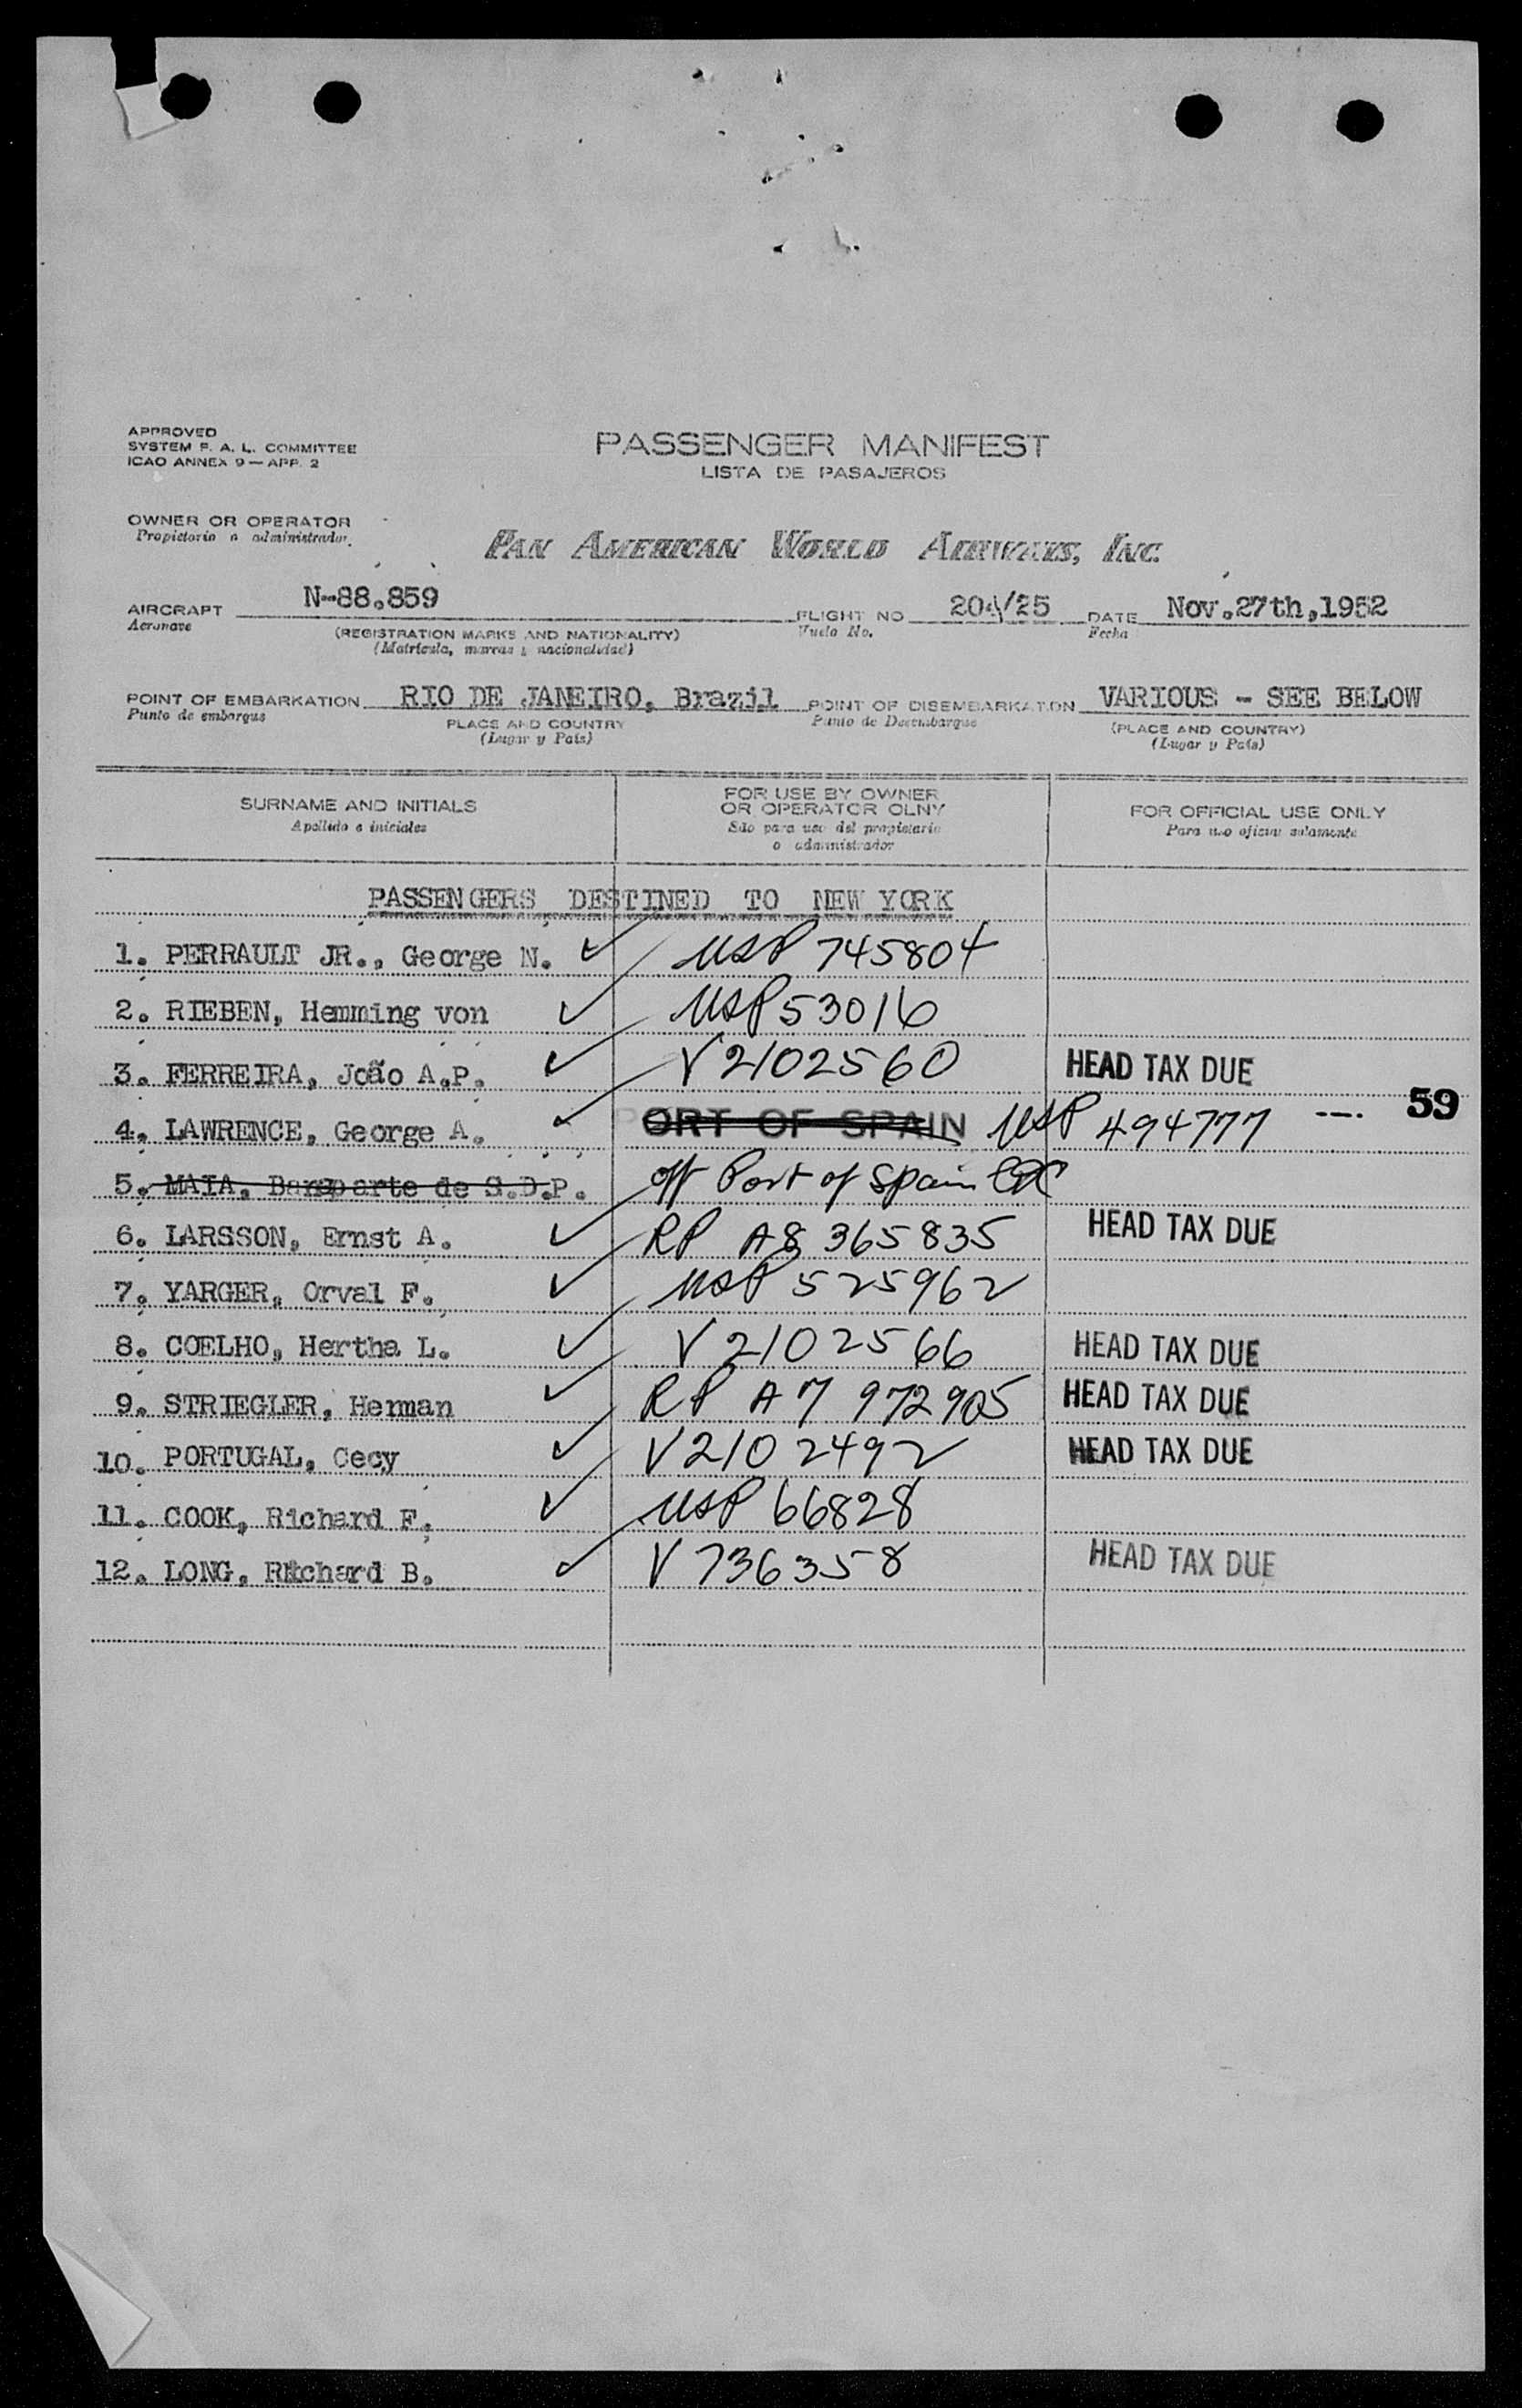 APPROVED
SYSTEM F. A. L. COMMITTEE
ICAO ANNEX 9 — APP. 2
PASSENGER MANIFEST
LISTA DE PASAJEROS
OWNER OR OPERATOR
Propietario o administrador
PAN AMERICAN WORLD AIRWAYS, INC.
AIRCRAFT N-88,859 FLIGHT NO 204/25 DATE Nov.27th,1952
Aeronave (REGISTRATION MARKS AND NATIONALITY) Vuelo No. Fecha
(Matricula, marcas y nacionalidad)
POINT OF EMBARKATION RIO DE JANEIRO, Brazil POINT OF DISEMBARKATION VARIOUS - SEE BELOW
Punto de embarque PLACE AND COUNTRY Punto de Desembarque (PLACE AND COUNTRY)
(Lugar y País) (Lugar y País)
SURNAME AND INITIALS
Apellido e iniciales
FOR USE BY OWNER
OR OPERATOR OLNY
Sólo para uso del propietario
o administrador
FOR OFFICIAL USE ONLY
Para uso oficial solamente
PASSENGERS DESTINED TO NEW YORK
1. PERRAULT JR., George N. ✓ USP 745804
2. RIEBEN, Hemming von ✓ USP 53016
3. FERREIRA, João A.P. ✓ V2102560 HEAD TAX DUE
4. LAWRENCE, George A. ✓ PORT OF SPAIN USP 494777 ---. 59
5. MAIA, de S.D.P. off Port of Spain
6. LARSSON, Ernst A. ✓ RP A8 365835 HEAD TAX DUE
7. YARGER, Orval F. ✓ USP 525962
8. COELHO, Hertha L. ✓ V 2102566 HEAD TAX DUE
9. STRIEGLER, Herman ✓ RP A7 972905 HEAD TAX DUE
10. PORTUGAL, Cecy ✓ V2102492 HEAD TAX DUE
11. COOK, Richard F. ✓ USP 66828
12. LONG, Richard B. ✓ V 736358 HEAD TAX DUE